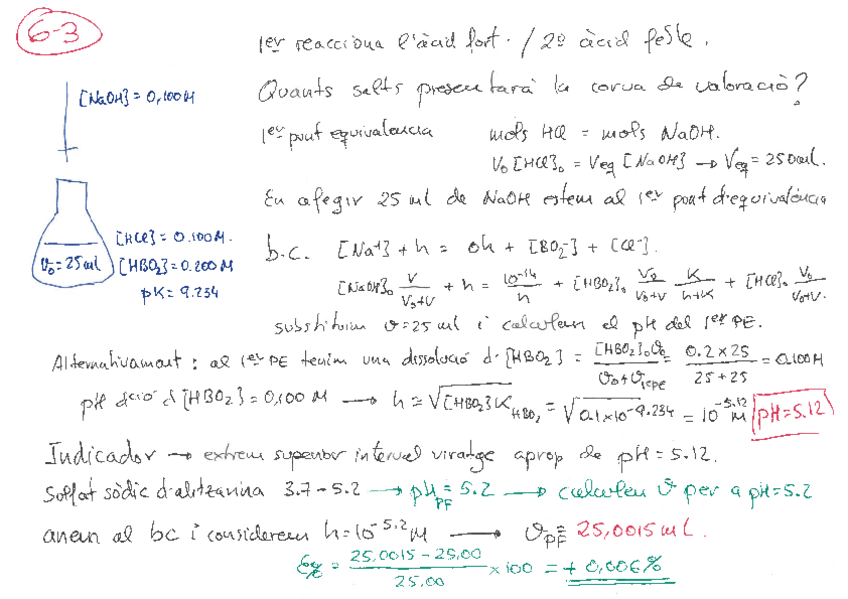 6-3
1er reacciona l'àcid fort. / 2º àcid feble.
[NaOH] = 0,100M
Quants salts presentarà la corva de valoració?
1er punt equivalencia mols HCl = mols NaOH.
V₀ [HCl]₀ = Veq [NaOH] → Veq = 25,00ml.
En afegir 25 ml de NaOH estem al 1er punt d'equivalència
[HCl] = 0.100M.
V₀ = 25ml [HBO₂] = 0.200M
pK = 9.234
b.c. [Na⁺] + h = oh + [BO₂⁻] + [Cl⁻].
[NaOH]₀ V/(V₀+V) + h = 10⁻¹⁴/h + [HBO₂]₀ V₀/(V₀+V) K/(h+K) + [HCl]₀ V₀/(V₀+V).
substituim v=25 ml i calculem el pH del 1er PE.
Alternativament : al 1er PE tenim una dissolució d'[HBO₂] = [HBO₂]₀V₀/(V₀+V1erPE) = 0.2 x 25/(25+25) = 0.100M
pH d'[HBO₂]=0,100 M → h ≈ √[HBO₂]K HBO₂ = √0.1x10⁻⁹·²³⁴ = 10⁻⁵·¹² M pH=5.12
Indicador → extrem superior interval viratge aprop de pH = 5.12.
Solfat sòdic d'alitzarina 3.7-5.2 → pH PF = 5.2 → calculem v per a pH=5.2
anem al bc i considerem h=10⁻⁵·² M → v PF = 25,0015 mL.
E% = (25,0015 - 25,00)/25,00 x 100 = + 0,006%